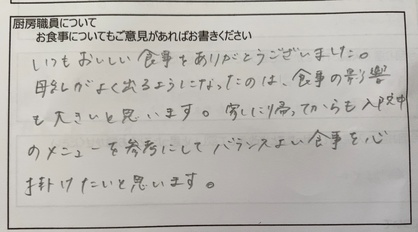 厨房職員について
お食事についてもご意見があればお書きください
いつもおいしい食事をありがとうございました。
母乳がよく出るようになったのは、食事の影響
も大きいと思います。家に帰ってからも入院中
のメニューを参考にしてバランスよい食事を心
掛けたいと思います。